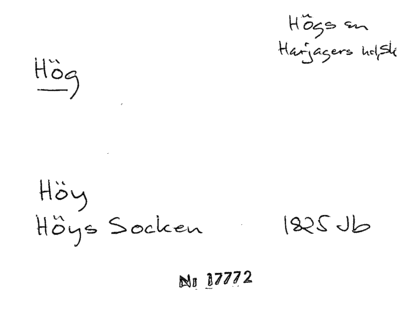 Högs sn
Harjagers hd, Sk
Hög
Höy
Höys Socken 1825 Jb
Nr 17772